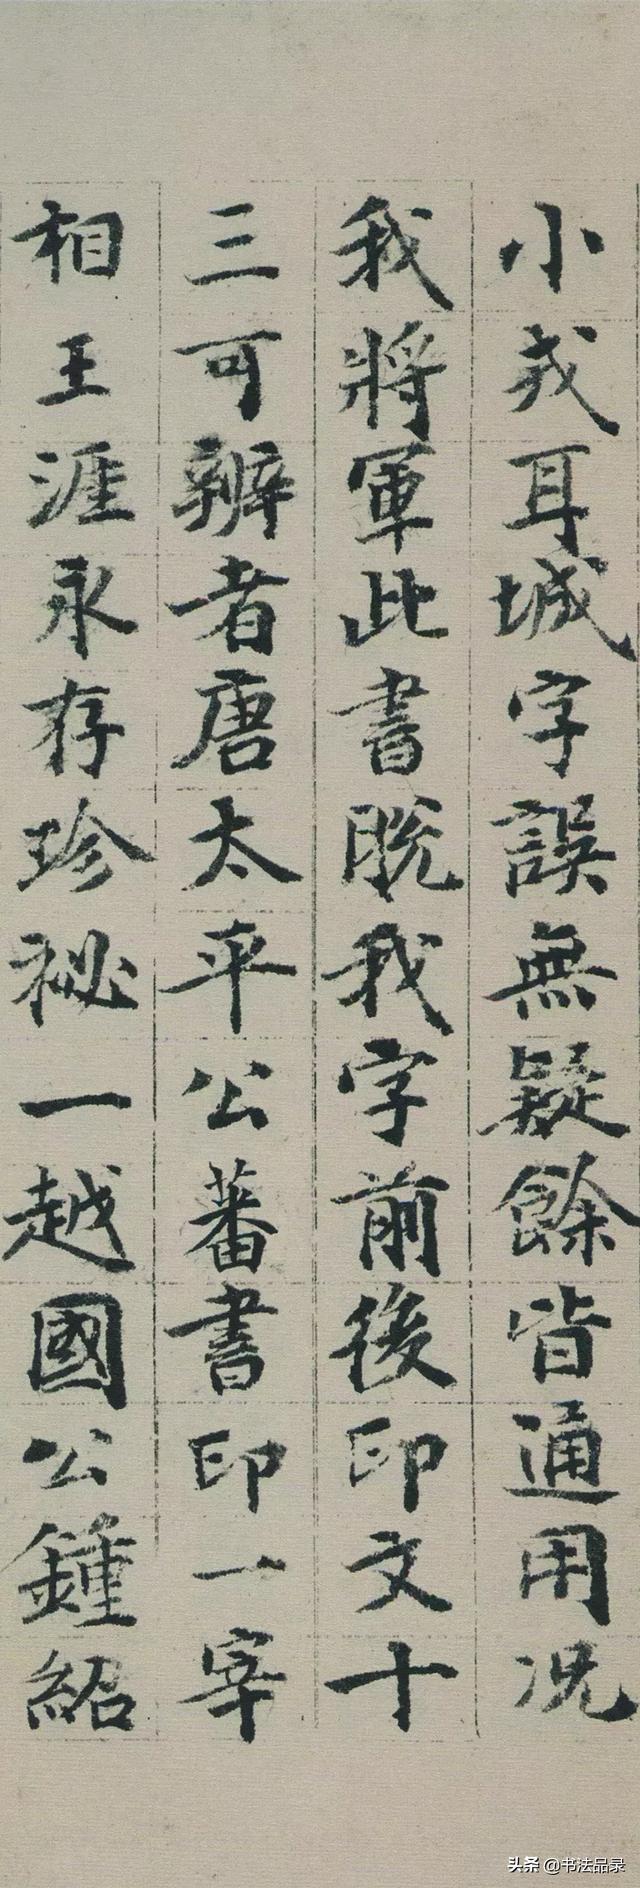 小戎耳城字誤無疑餘皆通用况
我將軍此書脫我字前後印文十
三可辨者唐太平公蕃書印一宰
相王涯永存珍祕一越國公鍾紹
头条 @书法品录